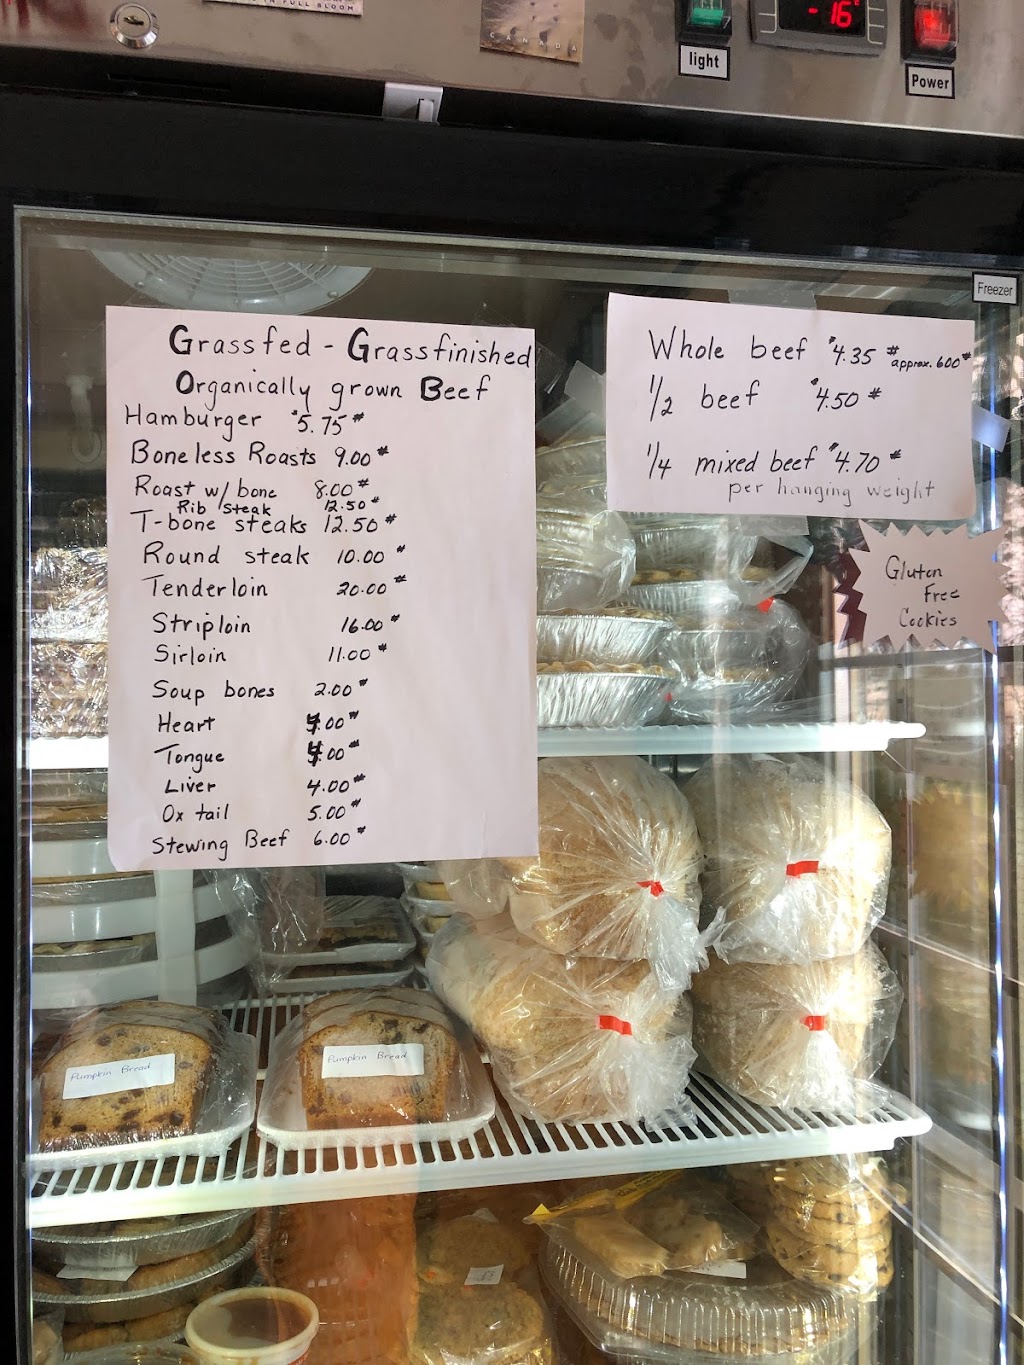 IN FULL BLOOM
CANADA
light
-16°
Power
Freezer
Grassfed - Grassfinished
Organically grown Beef
Hamburger $5.75#
Boneless Roasts 9.00#
Roast w/ bone 8.00#
Rib Steak 12.50#
T-bone steaks 12.50#
Round steak 10.00#
Tenderloin 20.00#
Striploin 16.00#
Sirloin 11.00#
Soup bones 2.00#
Heart 4.00#
Tongue 4.00#
Liver 4.00#
Ox tail 5.00#
Stewing Beef 6.00#
Whole beef $4.35# approx. 600#
1/2 beef $4.50#
1/4 mixed beef $4.70#
per hanging weight
Gluten
Free
Cookies
Pumpkin Bread
Pumpkin Bread